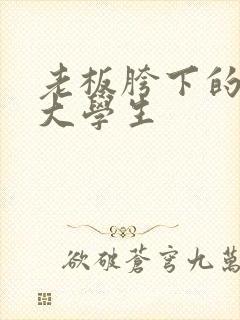 老板胯下的
大學生
欲破蒼穹九萬